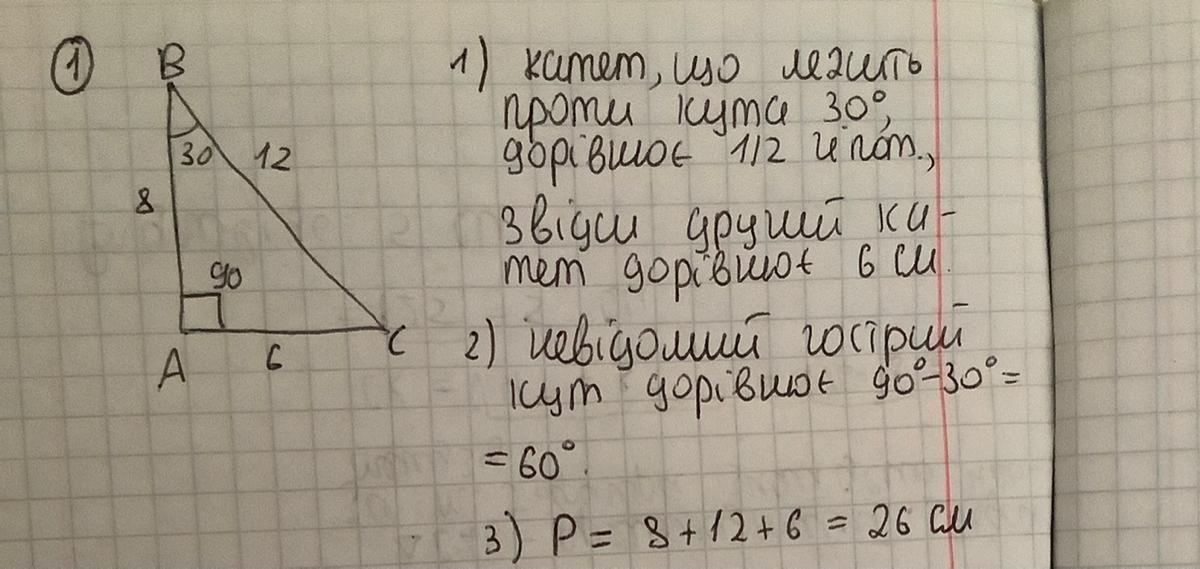 ①
B
30
12
8
90
A
6
C
1) катет, що лежить
проти кута 30°,
дорівнює 1/2 гіпот.,
звідси другий ка-
тет дорівнює 6 см.
2) невідомий гострий
кут дорівнює 90°-30°=
=60°.
3) P = 8+12+6 = 26 см